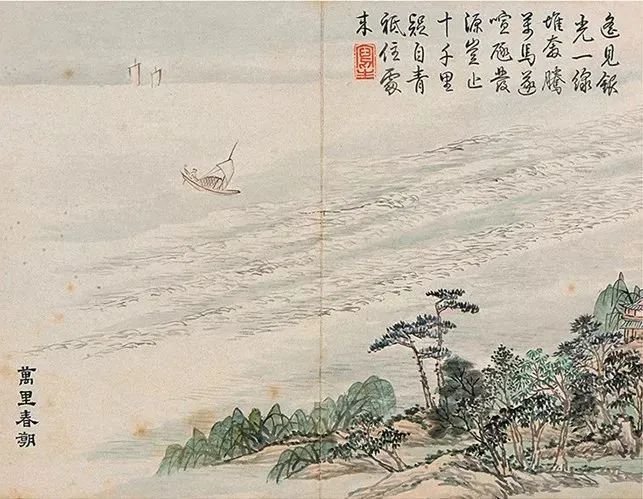 遙見銀
光一線
堆奔騰
萬馬逐
喧豗發
源豈止
十千里
疑自青
祇住處
來
萬里春潮